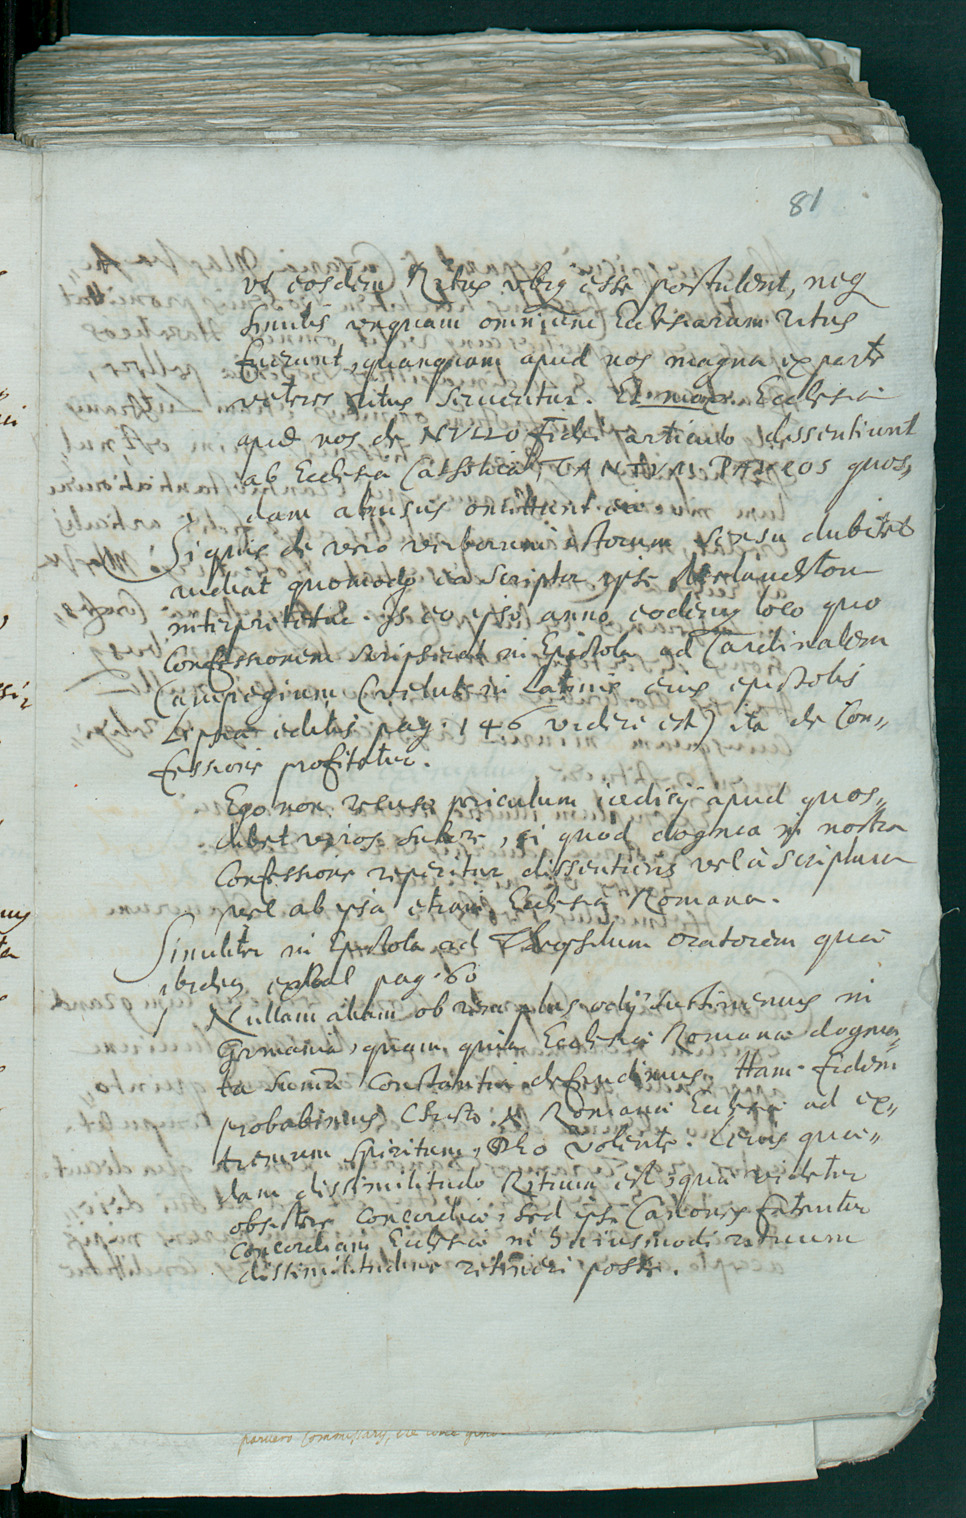 81
ut eosdem Ritus ubiq; esse postulent, neq
similes unquam omnium Ecclesiarum ritus
fuerunt, quanquam apud nos magna ex parte
veteres ritus serventur. Et mox. Ecclesiæ
apud nos de NVLLO fidei articulo dissentiunt
ab Ecclesia Catholica, TANTVM PAVCOS quos,,
dam abusus omittunt
Siquis de vero verborum istorum sensu dubitet
audiat quomodo ea Scriptor ipse Melanchton
interpretetur. Is eo ipso anno eodemq loco quo
Confessionem scripserat in Epistola ad Cardinalem
Campegium (velut in Latinis eius epistolis
Lipsiæ editis pag. 146 videre est) ita de Con,,
fessione profitetur.
Ego non recuso periculum iudicij apud quos,,
libet viros subire, si quod dogma in nostra
Confessione reperitur dissentiens vel à Scriptura
vel ab ipsa etiam Ecclesia Romana.
Similiter in Epistola ad oratorem quæ
ibidem extat pag. 60
Nullam aliam ob rem plus odij sustinemus in
Germania, quam quia Ecclesiæ Romanæ dogma,,
ta summa constantia defendimus. Hanc fidem
probabimus Christo & Romanæ Ecclesiæ ad ex,,
tremum spiritum, Deo volente. Levis quæ,,
dam dissimilitudo Rituum est, quæ videtur
obstare concordiæ, sed ipsi Canones fatentur
concordiam Ecclesiæ in huiusmodi rituum
dissimilitudine retineri posse.